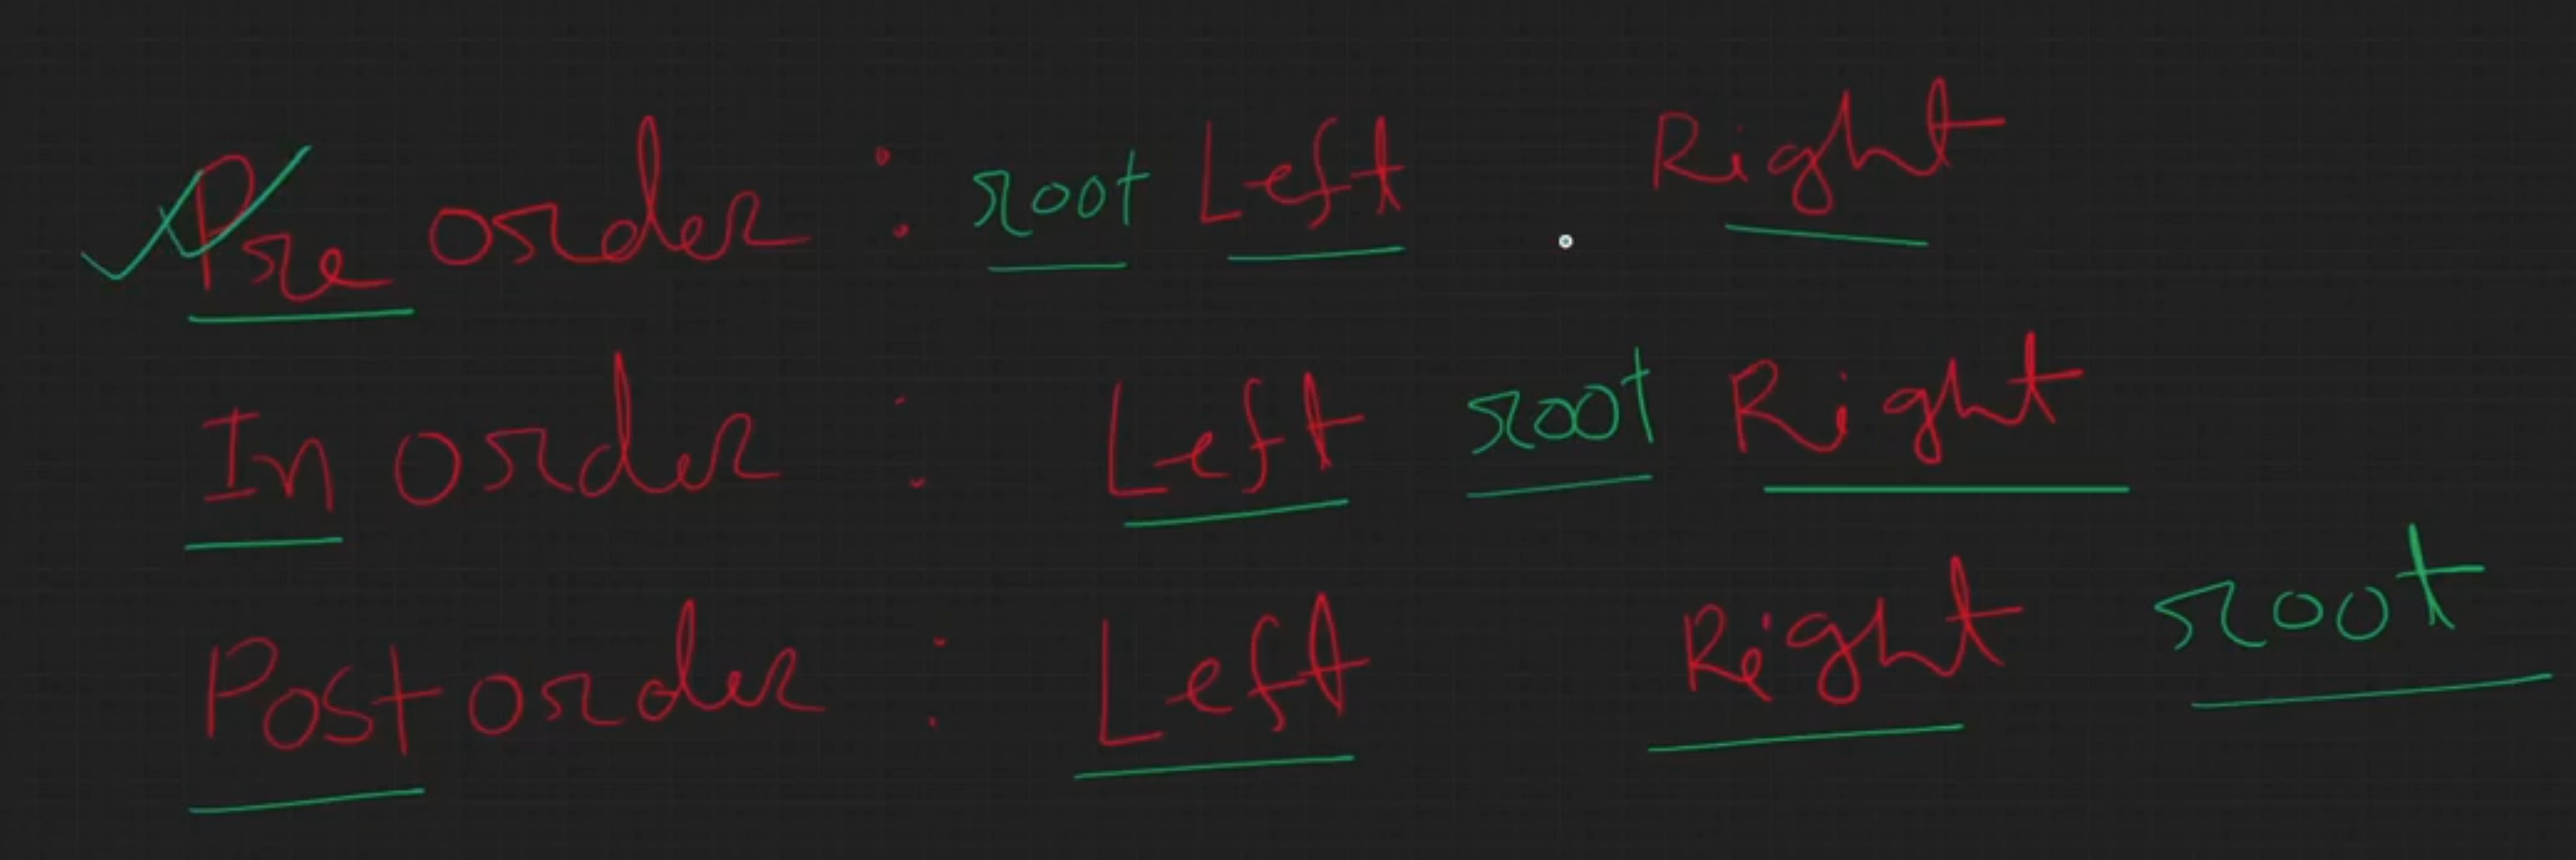 Pre order : root Left Right
In order : Left root Right
Post order : Left Right root